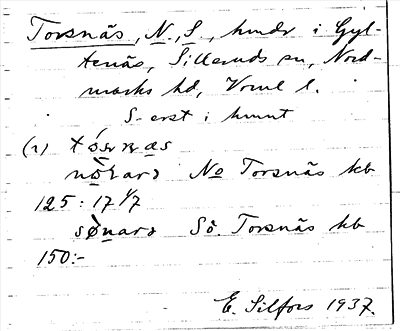 Torsnäs, N., S., hmdr i Gyl-
tenäs, Silleruds sn, Nord-
marks hd, Vrml l.
S. erst i hmnt
(1)
No Torsnäs kb
125: 17 1/7
Sö. Torsnäs kb
150:-
E. Silfors 1937.